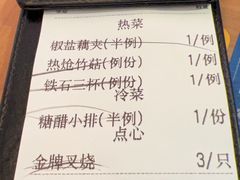 热菜
椒盐藕夹(半例) 1/例
热炝竹菇(例份) 1/例
铁石三杯(例份) 1/例
冷菜
糖醋小排(半例) 1/份
点心
金牌叉烧 3/只